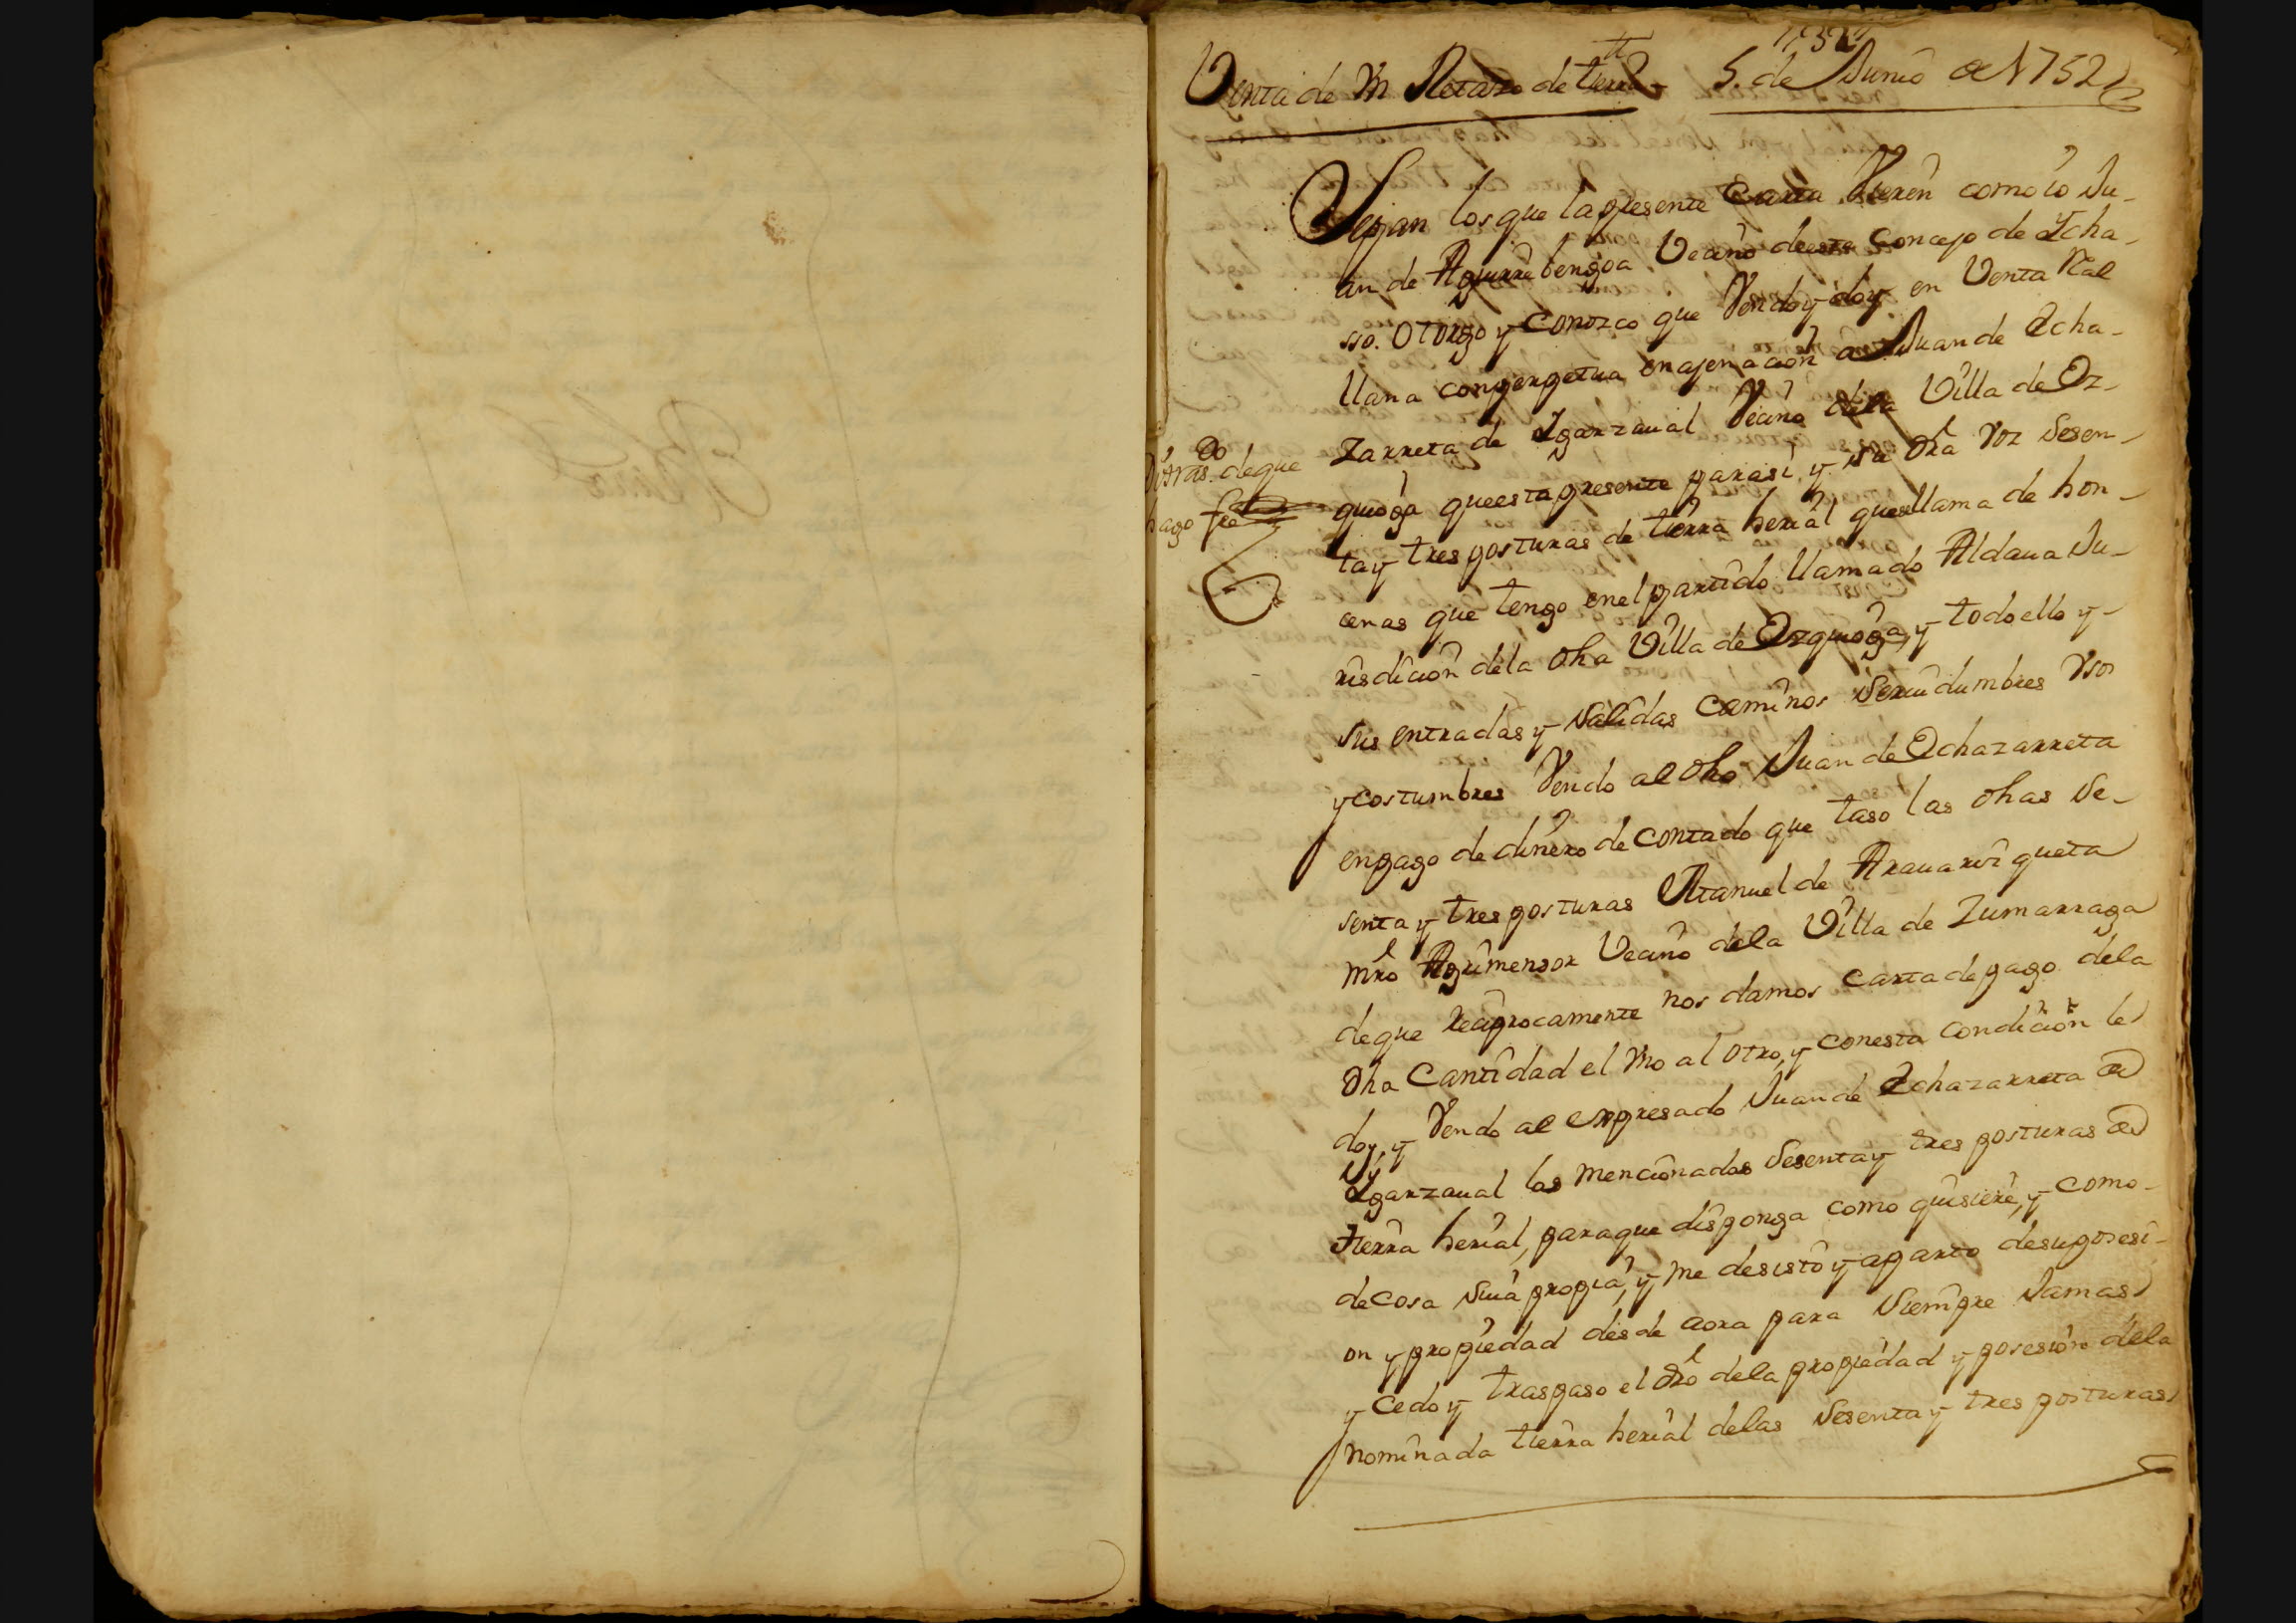 1752
Venta de Vn Retazo de tierra 5. de Junio de 1752
Sepan los que la presente Carta Vieren como io Ju-
an de Aguirrebengoa Vecino de este Concejo de Ycha-
sso. Otorgo y Conozco que Vendo y doy en Venta Ral
llana con perpetua enajenacion a Juan de Echa-
zarreta de Ygarzaual Vecino dela Villa de Oz-
dhas. de que
hago fee
quioga que esta presente para si, y su dra voz Sesen-
ta y tres posturas de tierra herial que se llama de hon-
cenas que tengo en el partido llamado Aldaua Ju-
risdicion de la dha Villa de Ozquioga, y todo ello y-
sus entradas y Salidas Caminos Seruidumbres Vsos
y costumbres Vendo al dho Juan de Echazarreta
en pago de dinero de Contado que taso las dhas Se-
senta y tres posturas Manuel de Arauarriqueta
Mro Agrimensor Vecino dela Villa de Zumarraga
de que Reciprocamente nos damos Carta de pago dela
dha Cantidad el Vno al Otro, y con esta condicion le
doy, y Vendo al expresado Juan de Echazarreta de
Ygarzaual las Mencionadas Sesenta y tres posturas de
tierra herial, para que disponga como quisiere, y como-
de Cosa Suia propia, y me desisto y aparto de su posesi-
on y propiedad desde aora para Siempre Jamas
y Cedo y traspaso el dro dela propiedad y posesion dela
nominada tierra herial delas Sesenta y tres posturas